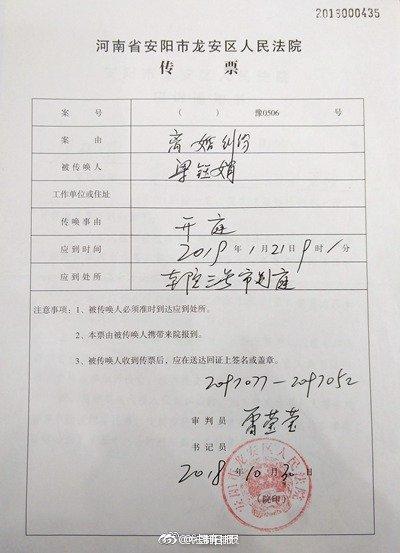 2018000435
河南省安阳市龙安区人民法院
传 票
案 号 （ ） 豫0506 号
案 由 离婚纠纷
被传唤人 梁钰娟
工作单位或住址
传唤事由 开庭
应到时间 2019 年 1 月 21 日 9 时 分
应到处所 东院三号审判庭
注意事项：1、被传唤人必须准时到达应到处所。
2、本票由被传唤人携带来院报到。
3、被传唤人收到传票后，应在送达回证上签名或盖章。
2097077—2097052
审判员
书记员
2018 年 10 月 30 日
安阳市龙安区人民法院
（院印）